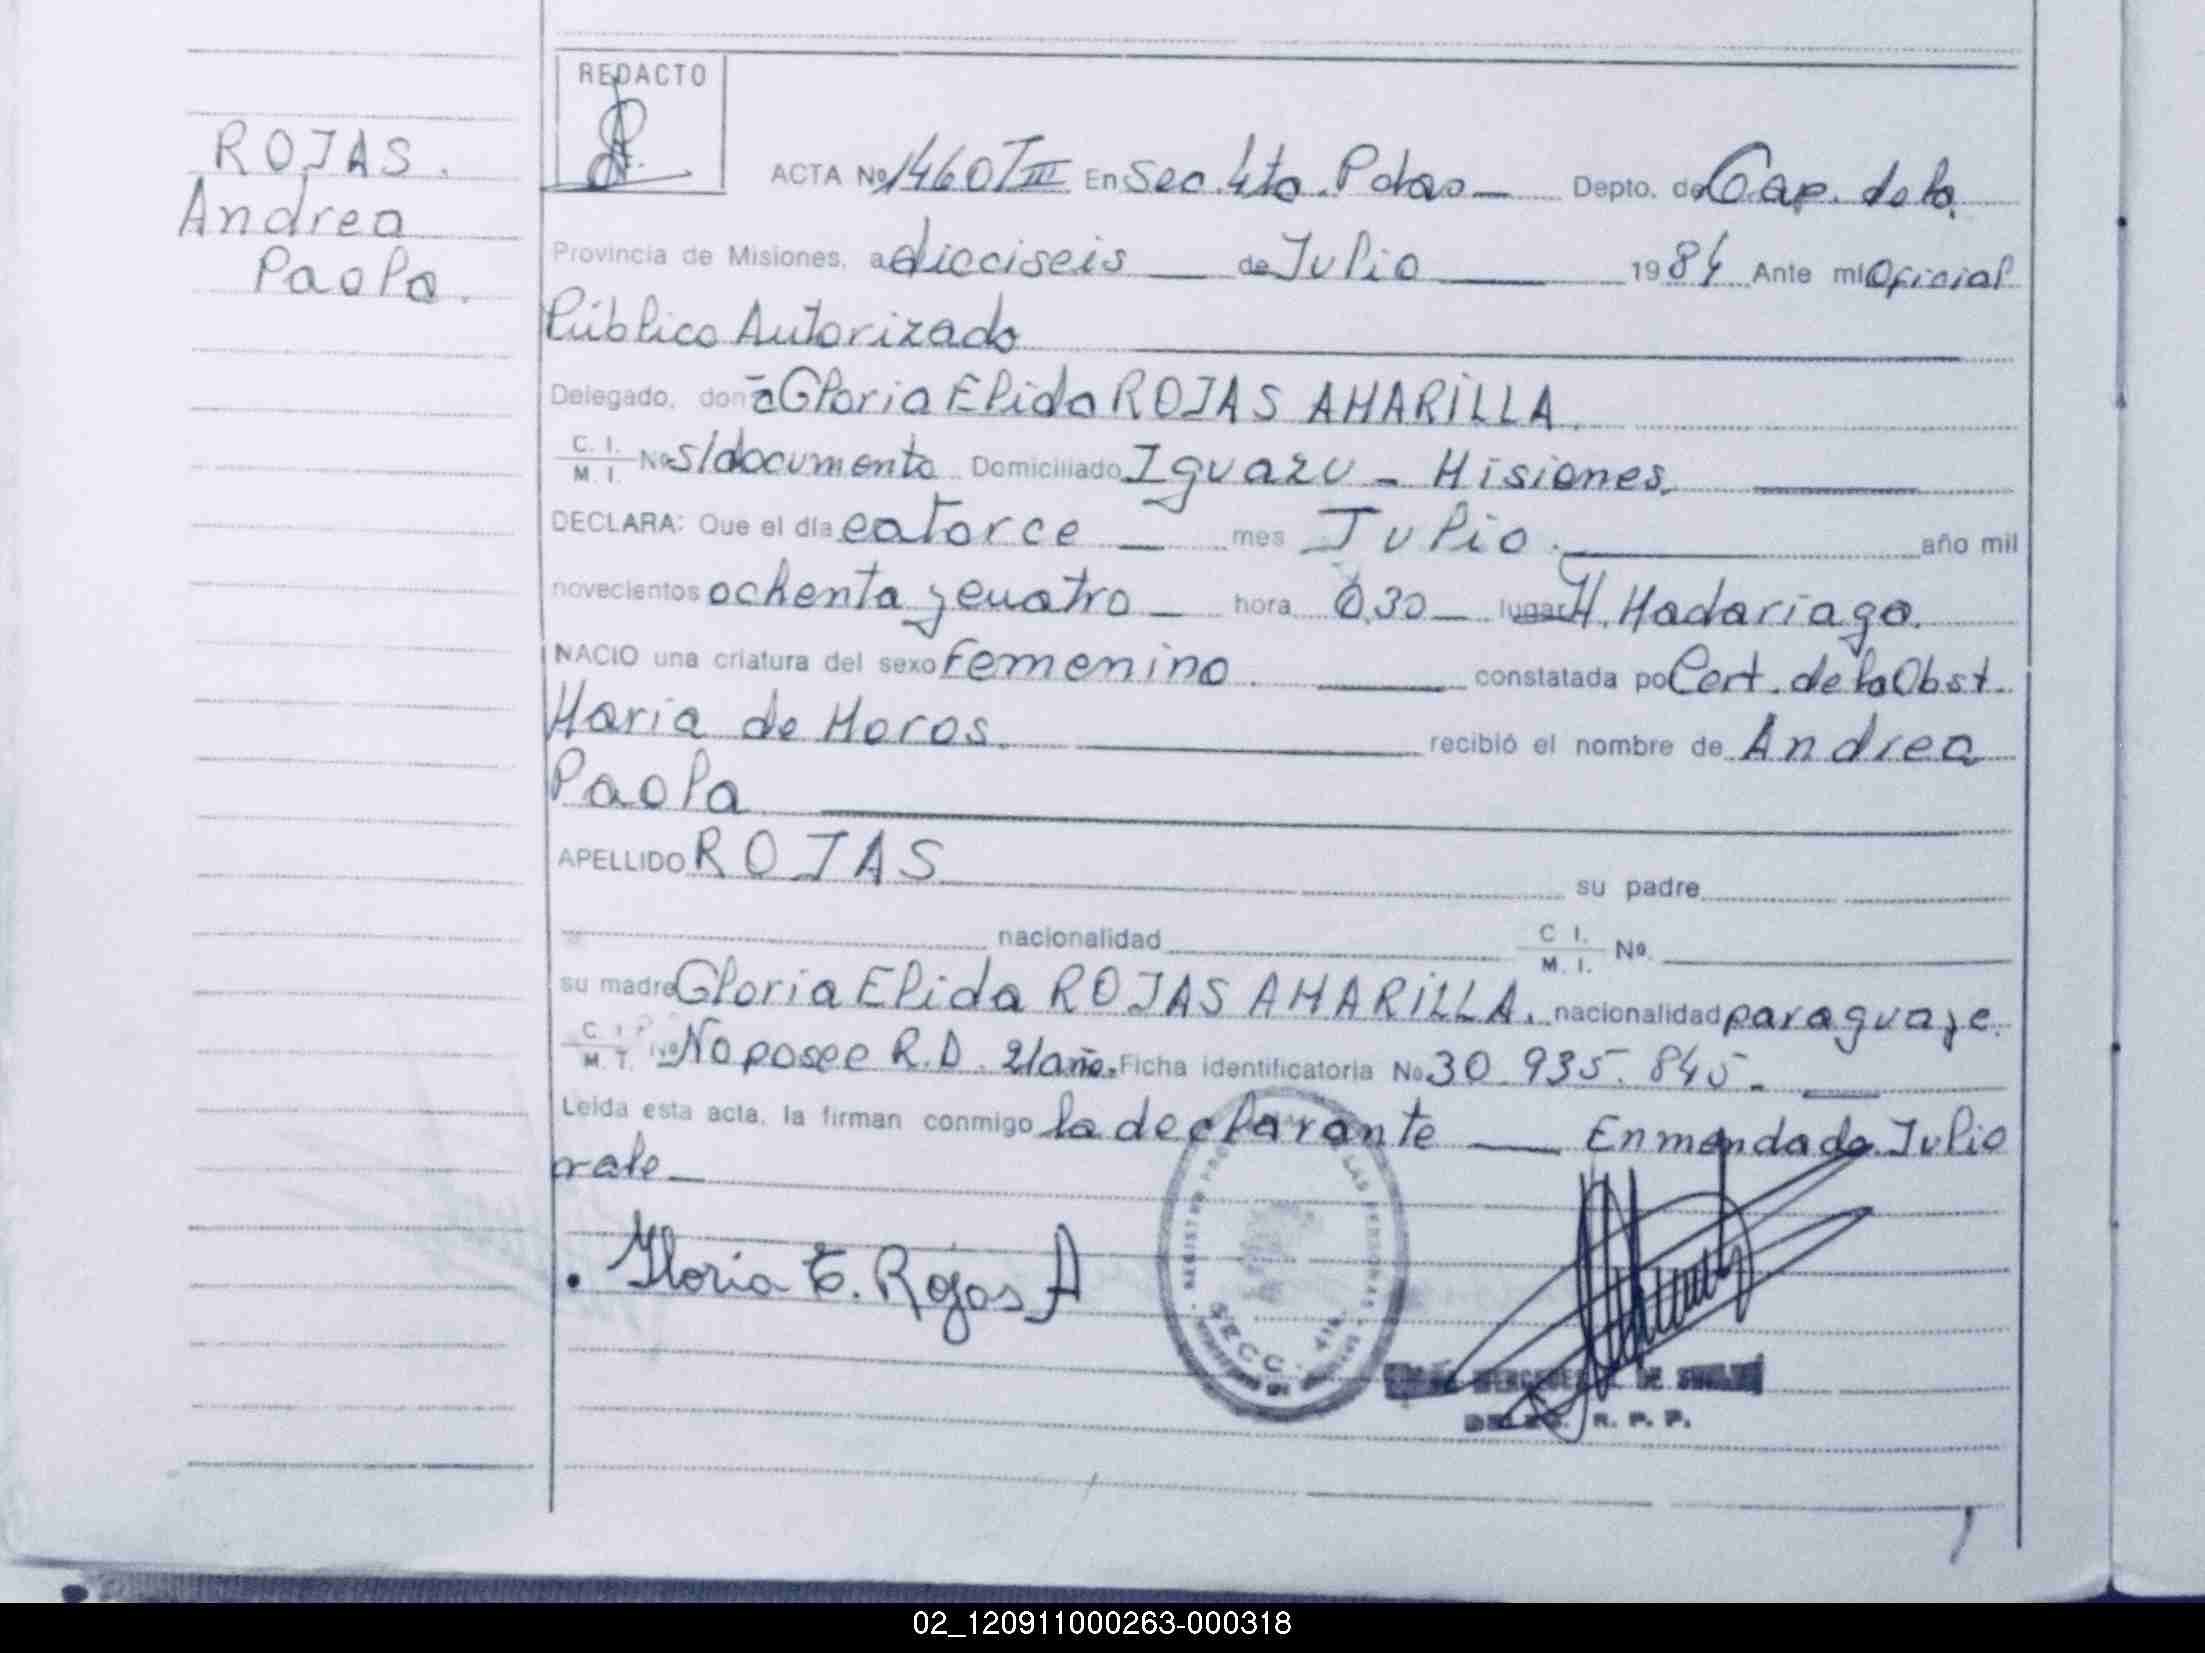 ROJAS.
Andrea
Paola.
REDACTO
ACTA Nº 1460 T III En Sec. 4ta. Pdas Depto. de Cap. de la
Provincia de Misiones, a dieciseis de Julio 1984 Ante mi Oficial
Público Autorizado
Delegado, don ña Gloria Elida ROJAS AMARILLA
C. I.
M. I. Nº s/documento Domiciliado Iguazu - Misiones.
DECLARA: Que el día catorce mes Julio. año mil
novecientos ochenta y cuatro hora 0,30 lugar H. Madariaga.
NACIO una criatura del sexo Femenino. constatada po Cert. de la Obst.
Maria de Moros. recibió el nombre de Andrea
Paola
APELLIDO ROJAS su padre
nacionalidad C I. M. I. Nº
su madre Gloria Elida ROJAS AMARILLA. nacionalidad paraguaye.
C I M. T. Nº No posee R.D. 21 año. Ficha identificatoria Nº 30.935.845.-
Leida esta acta, la firman conmigo la declarante Enmendado Julio
vale
Gloria E. Rojas A
LAS PERSONAS
SECC. 4ta.
MERCEDES DE
DELEG. R. P. P.
02_120911000263-000318